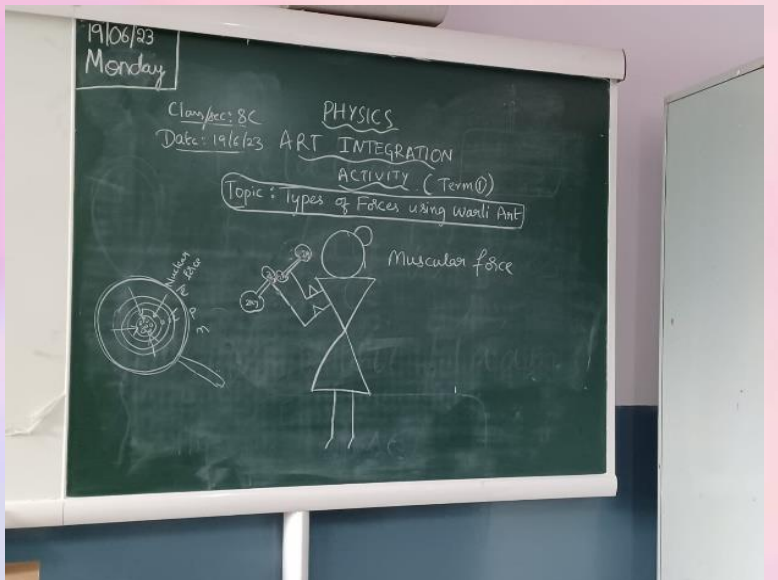 19/06/23
Monday
Class/sec: 8C
PHYSICS
Date: 19/6/23
ART INTEGRATION
ACTIVITY (Term 1)
Topic: Types of Forces using Warli Art
Muscular force
Nuclear
force